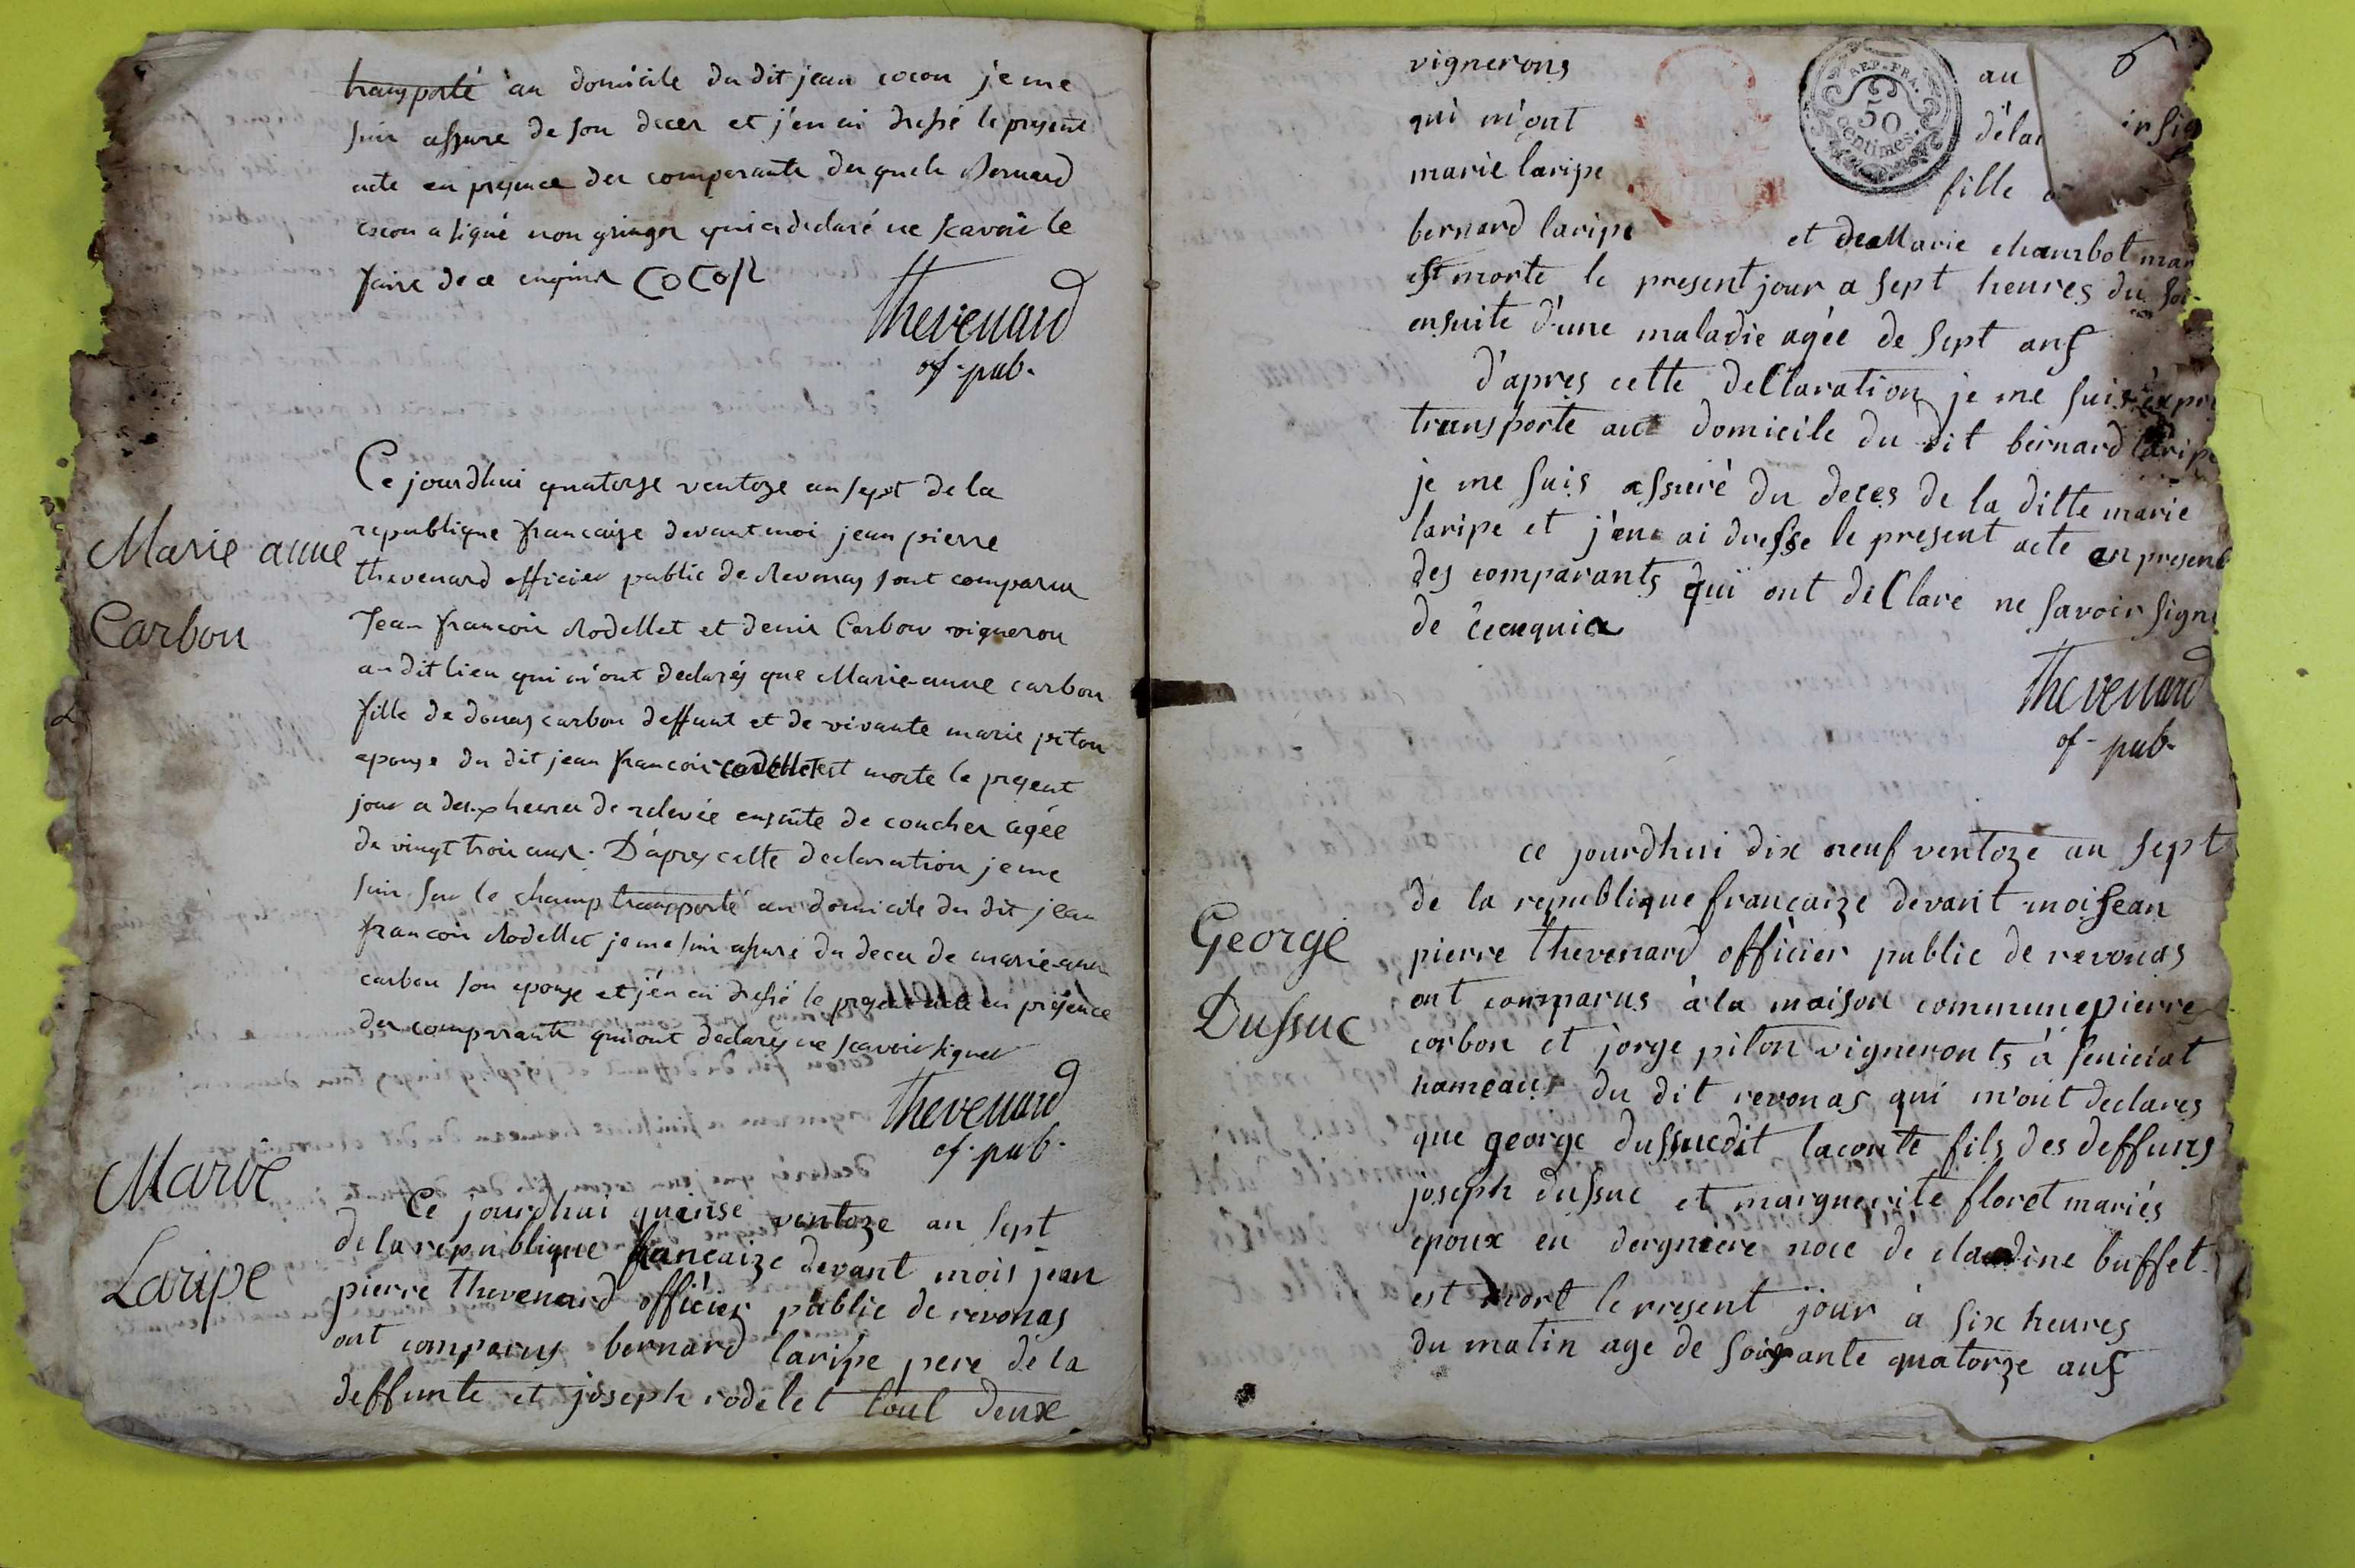 transporté au domicile du dit jean cocon je me
suis assure de son deces et j'en ai dressé le present
acte en presence des comparants desquels Bernard
cocon a signé non gringos qui a declaré ne scavoir le
faire de ce enquis COCON
thevenard
of. pub.
Marie anne
Carbon
Ce jourdhui quatorze ventoze an sept de la
republique francaise devant moi jean pierre
thevenard officier public de Revonas sont comparus
Jean francois Rodellet et denis Carbon vigneron
au dit lieu qui m'ont declarés que Marie-anne carbon
fille de donas carbon deffunt et de vivante marie piton
epouse du dit jean francois rodellet est morte le present
jour a deux heures de relevée ensuite de couches agée
de vingt trois ans. D'apres cette declaration je me
suis sur le champ transporté au domicile du dit jean
francois Rodellet je me suis assuré du deces de marie-anne
carbon son epouse et j'en ai dressé le present acte en présence
des comparants qui ont declarés ne scavoir signer
thevenard
of. pub.
Marie
Laripe
Ce jourdhui quinse ventoze an sept
de la republique francaize devant mois jean
pierre thevenard officier public de revonas
ont comparus bernard laripe pere de la
deffunte et joseph rodelet tout deux
6
vignerons au
qui m'ont délar
marie laripe fille
bernard laripe et de Marie chambot mar
est morte le present jour a sept heures du soi
ensuite d'une maladie agée de sept ans
d'apres cette declaration je me suis expre
transporte au domicile du dit bernard laripe
je me suis assuré du deces de la ditte marie
laripe et j'en ai dresse le present acte en presen
des comparants qui ont declare ne savoir signe
de
thevenard
of. pub.
REP. FRA.
50
centimes.
George
Dussuc
ce jourdhui dix neuf ventoze an sept
de la republique francaize devant moi jean
pierre thevenard officier public de revonas
ont comparus à la maison commune pierre
corbon et jorge piton vigneronts à seniciat
hameau du dit revonas qui m'ont declares
que george dussuc dit laconte fils des deffuns
joseph dussuc et marguerite floret mariés
epoux en dergniere noce de claudine buffet
est mort le present jour à six heures
du matin age de soixante quatorze ans